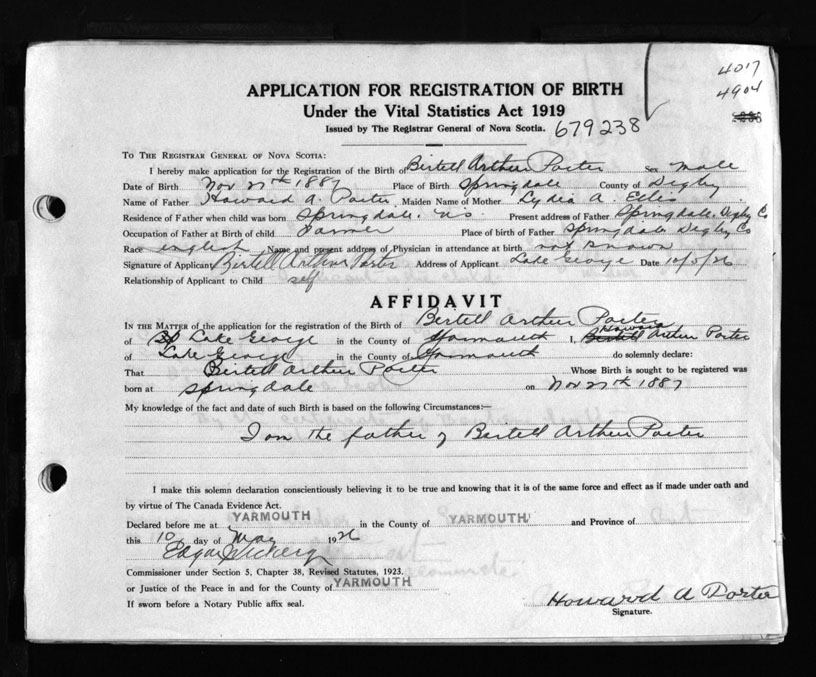 4017
4904
APPLICATION FOR REGISTRATION OF BIRTH
Under the Vital Statistics Act 1919
Issued by The Registrar General of Nova Scotia. 679238
TO THE REGISTRAR GENERAL OF NOVA SCOTIA:
I hereby make application for the Registration of the Birth of Bertell Arthur Porter Sex male
Date of Birth Nov 27th 1887 Place of Birth Springdale County of Digby
Name of Father Howard A. Porter Maiden Name of Mother Lydia A. Ellis
Residence of Father when child was born Springdale. N.S. Present address of Father Springdale. Digby Co
Occupation of Father at Birth of child Farmer Place of birth of Father Springdale Digby Co
Race english Name and present address of Physician in attendance at birth not known
Signature of Applicant Bertell Arthur Porter Address of Applicant Lake George Date 10/5/26
Relationship of Applicant to Child self
AFFIDAVIT
IN THE MATTER of the application for the registration of the Birth of Bertell Arthur Porter
of Lake George in the County of Yarmouth I, Howard Arthur Porter
of Lake George in the County of Yarmouth do solemnly declare:
That Bertell Arthur Porter Whose Birth is sought to be registered was
born at Springdale on Nov 27th 1887
My knowledge of the fact and date of such Birth is based on the following Circumstances:—
I am the father of Bertell Arthur Porter
I make this solemn declaration conscientiously believing it to be true and knowing that it is of the same force and effect as if made under oath and
by virtue of The Canada Evidence Act.
Declared before me at YARMOUTH in the County of YARMOUTH and Province of
this 10 day of May 1926
Edgar
Commissioner under Section 5, Chapter 38, Revised Statutes, 1923.
or Justice of the Peace in and for the County of YARMOUTH
If sworn before a Notary Public affix seal.
Howard A Porter
Signature.